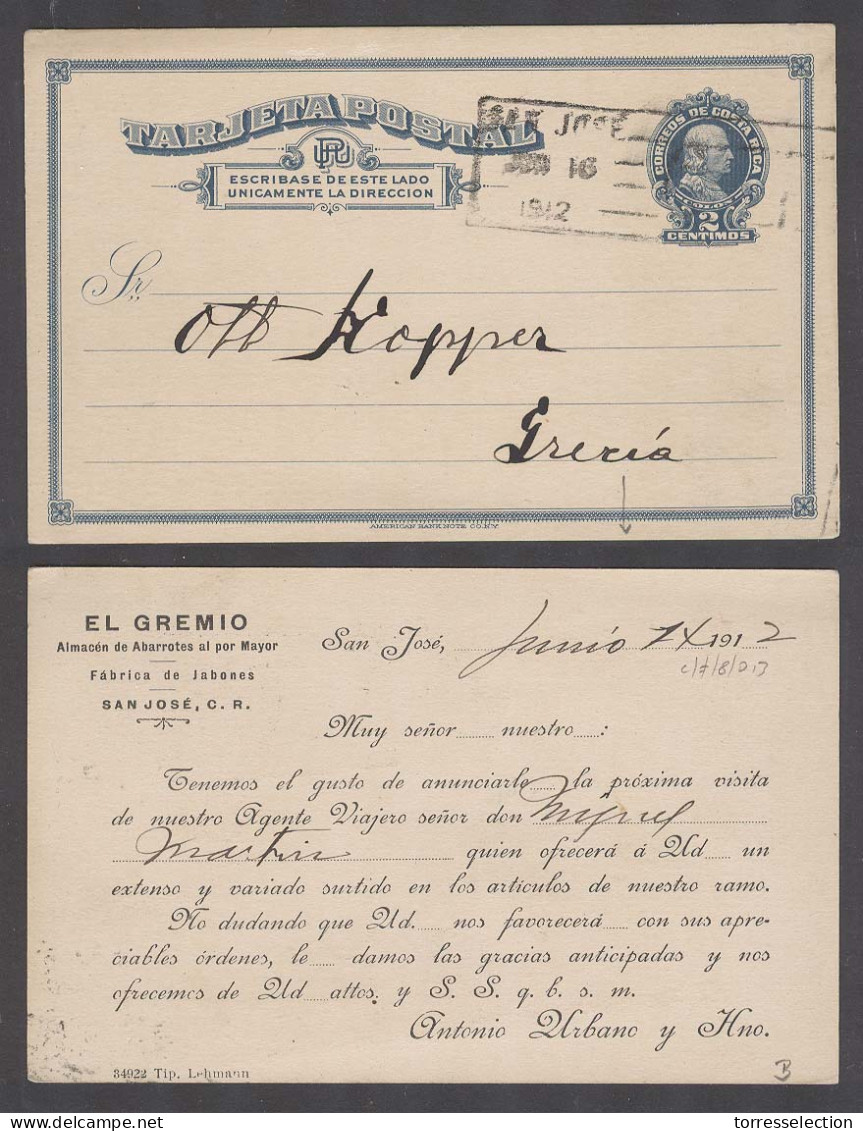 TARJETA POSTAL
UPU
ESCRIBASE DE ESTE LADO
UNICAMENTE LA DIRECCION
SAN JOSE
JUN 16
1912
CORREOS DE COSTA RICA
COLON
2
CENTIMOS
Sr.
Ott Kopper
Grecia
AMERICAN BANK NOTE CO. N.Y.
EL GREMIO
Almacén de Abarrotes al por Mayor
Fábrica de Jabones
SAN JOSÉ, C. R.
San José, Junio 14 1912
Muy señor nuestro :
Tenemos el gusto de anunciarle la próxima visita
de nuestro Agente Viajero señor don Miguel
Martin quien ofrecerá á Ud un
extenso y variado surtido en los artículos de nuestro ramo.
No dudando que Ud. nos favorecerá con sus apre-
ciables órdenes, le damos las gracias anticipadas y nos
ofrecemos de Ud attos. y S. S. q. b. s. m.
Antonio Urbano y Hno.
34922 Tip. Lehmann
B
www.delcampe.net
torresselection